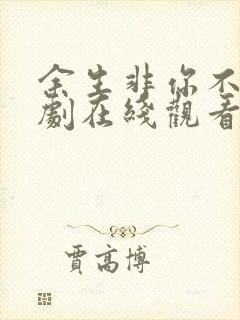 余生非你不
劇在綫觀看
賈高博